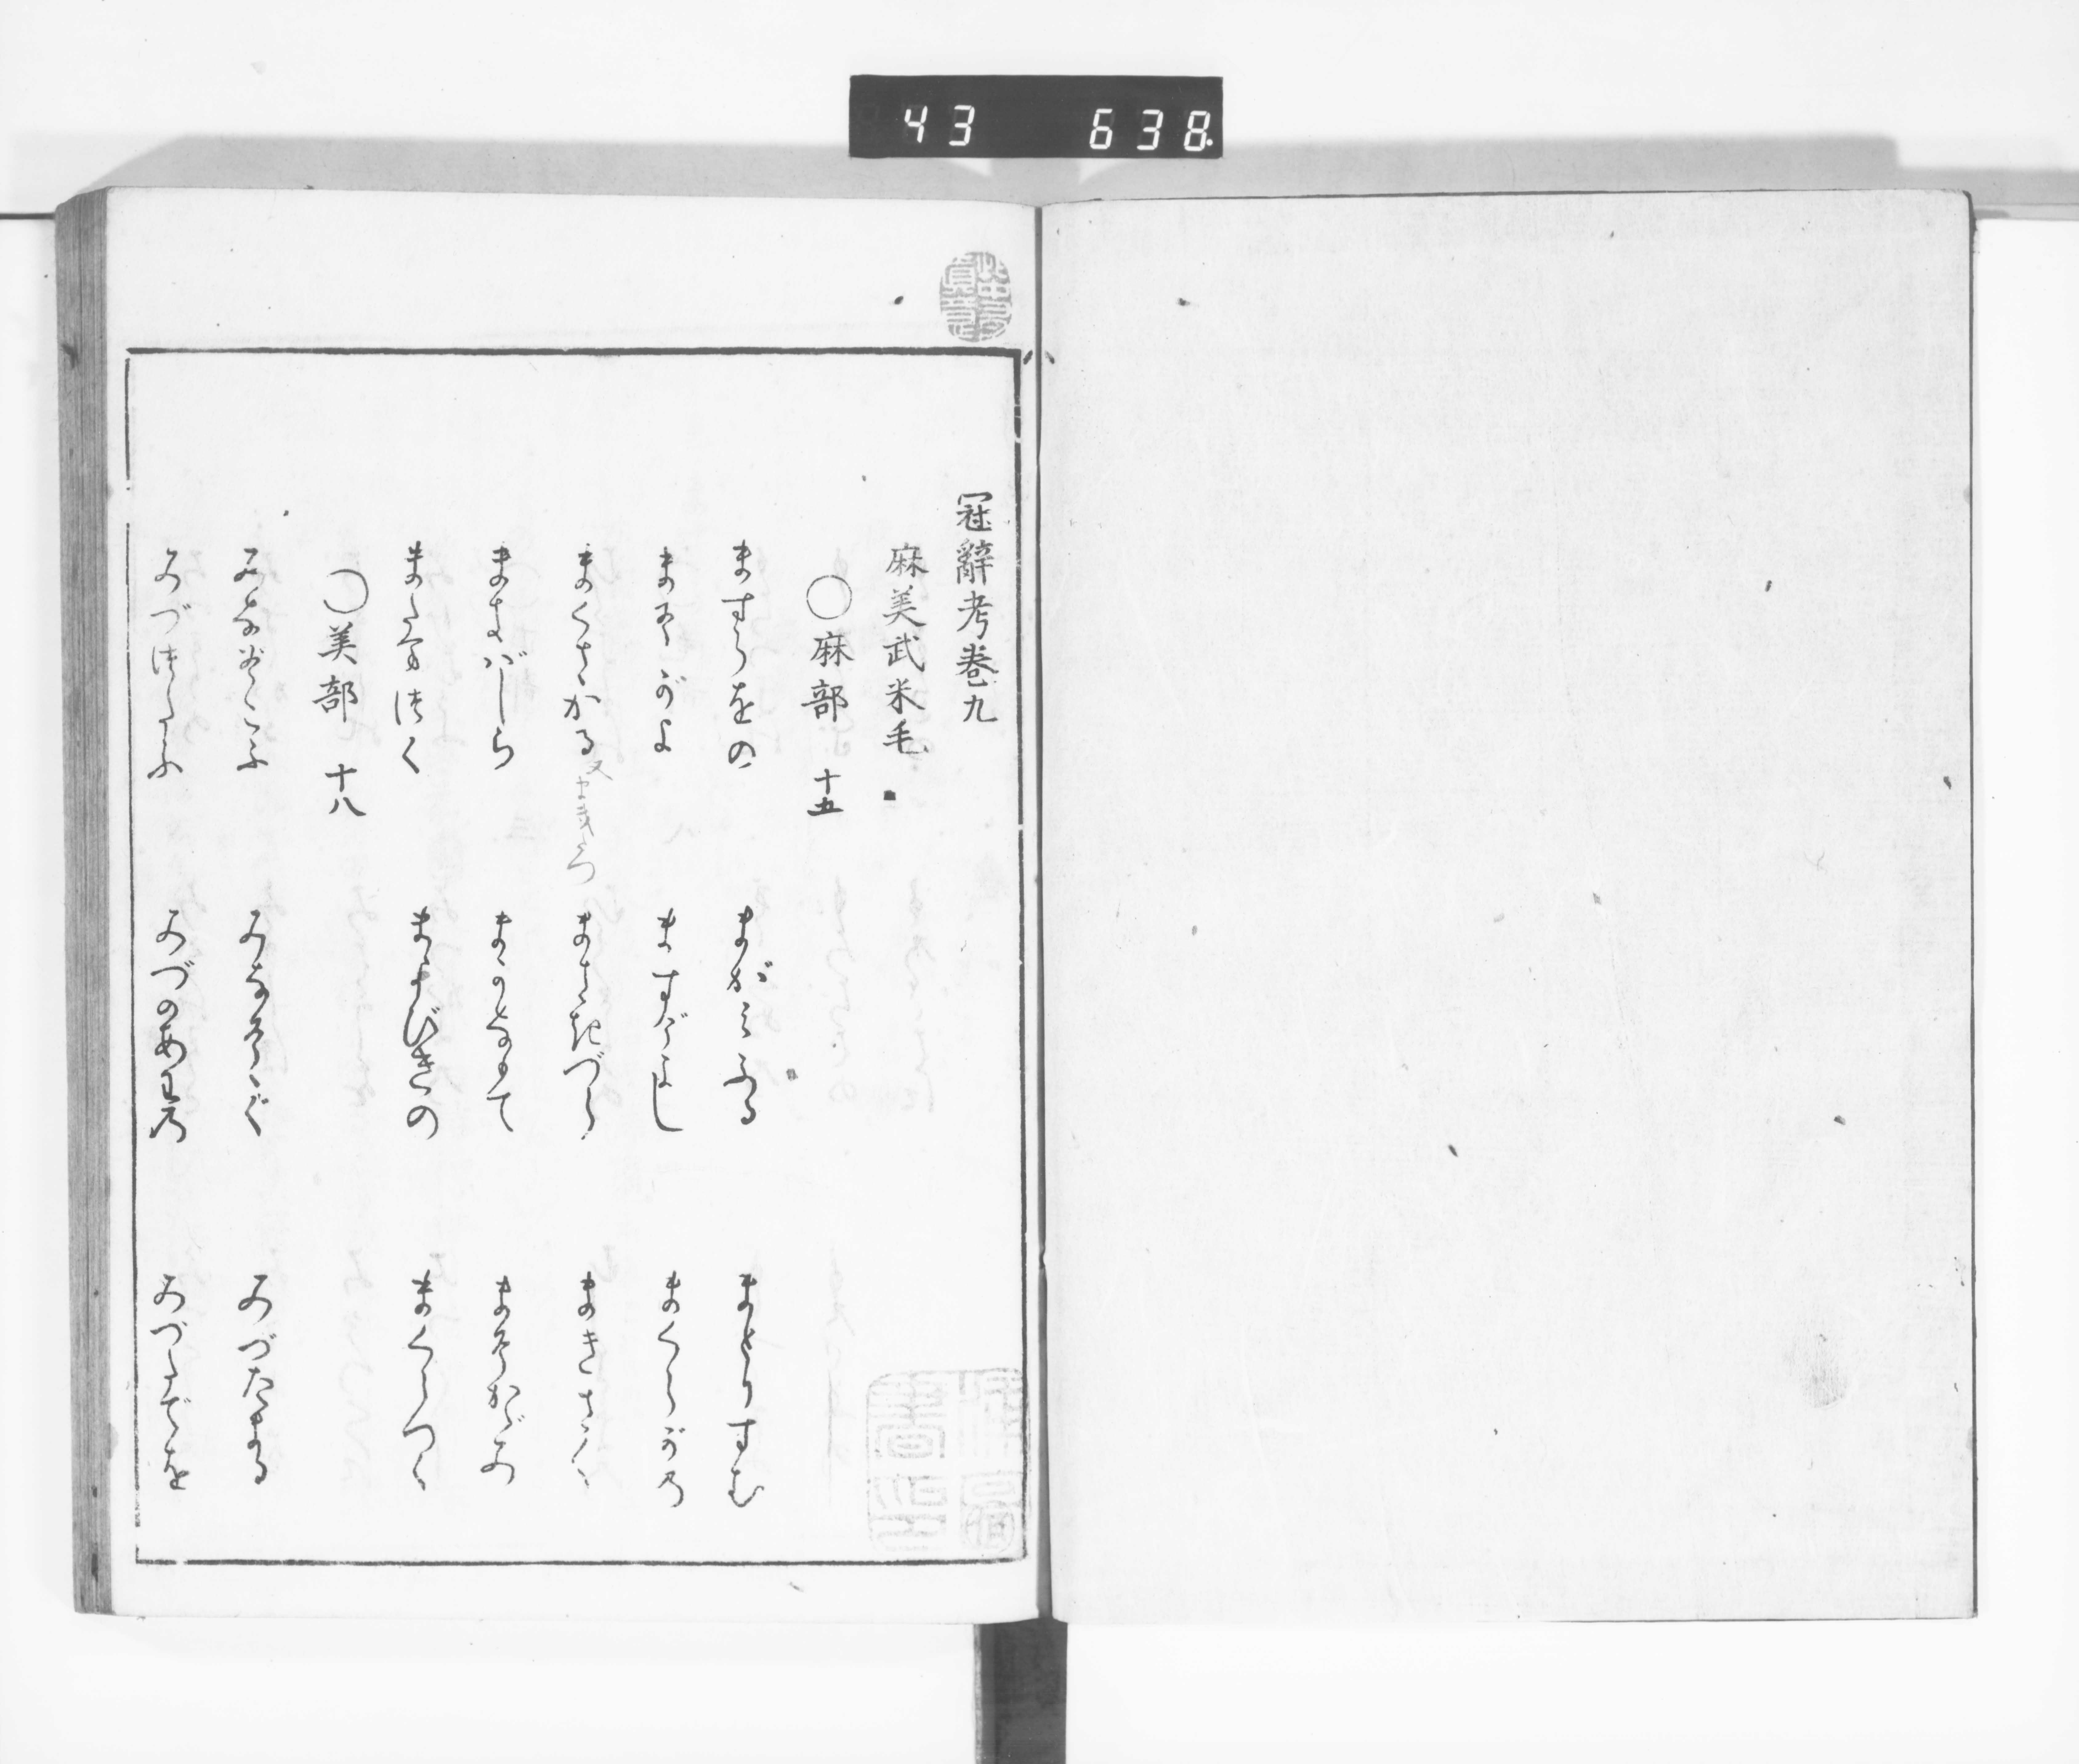 43 638
冠辭考卷九
麻美武米毛
○麻部 十五
ますらをの まがみふる まとりすむ
まそがよ ますげよし まくらがの
まくさかる 又まきたつ まさきづら まきさく
まきばしら まかなもて まそかゞみ
またまつく まよびきの まくらつく
○美部 十八
みなそこふ みなそゝぐ みづたまる
みづつたふ みづのあわの みづたでを